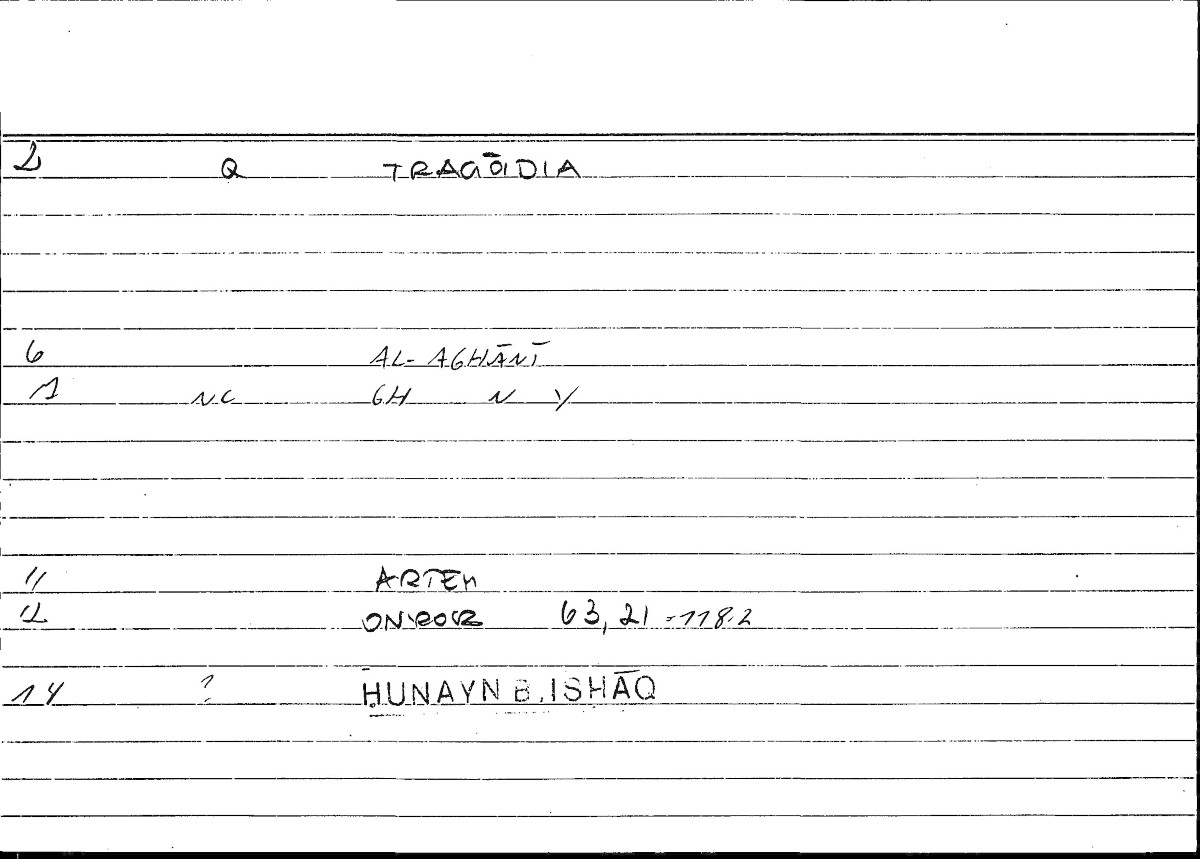 2 Q TRAGŌIDIA
6 AL-AGHĀNĪ
1 NC GH N Y
11 ARTEM
12 ONIROCR 63,21 = 118.2
14 ? ḤUNAYN B. ISḤĀQ